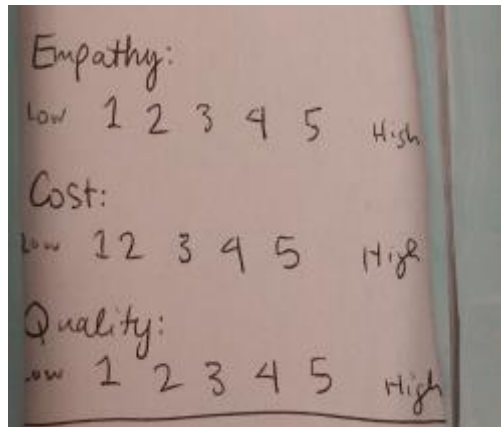 Empathy:
Low 1 2 3 4 5 High
Cost:
Low 1 2 3 4 5 High
Quality:
Low 1 2 3 4 5 High